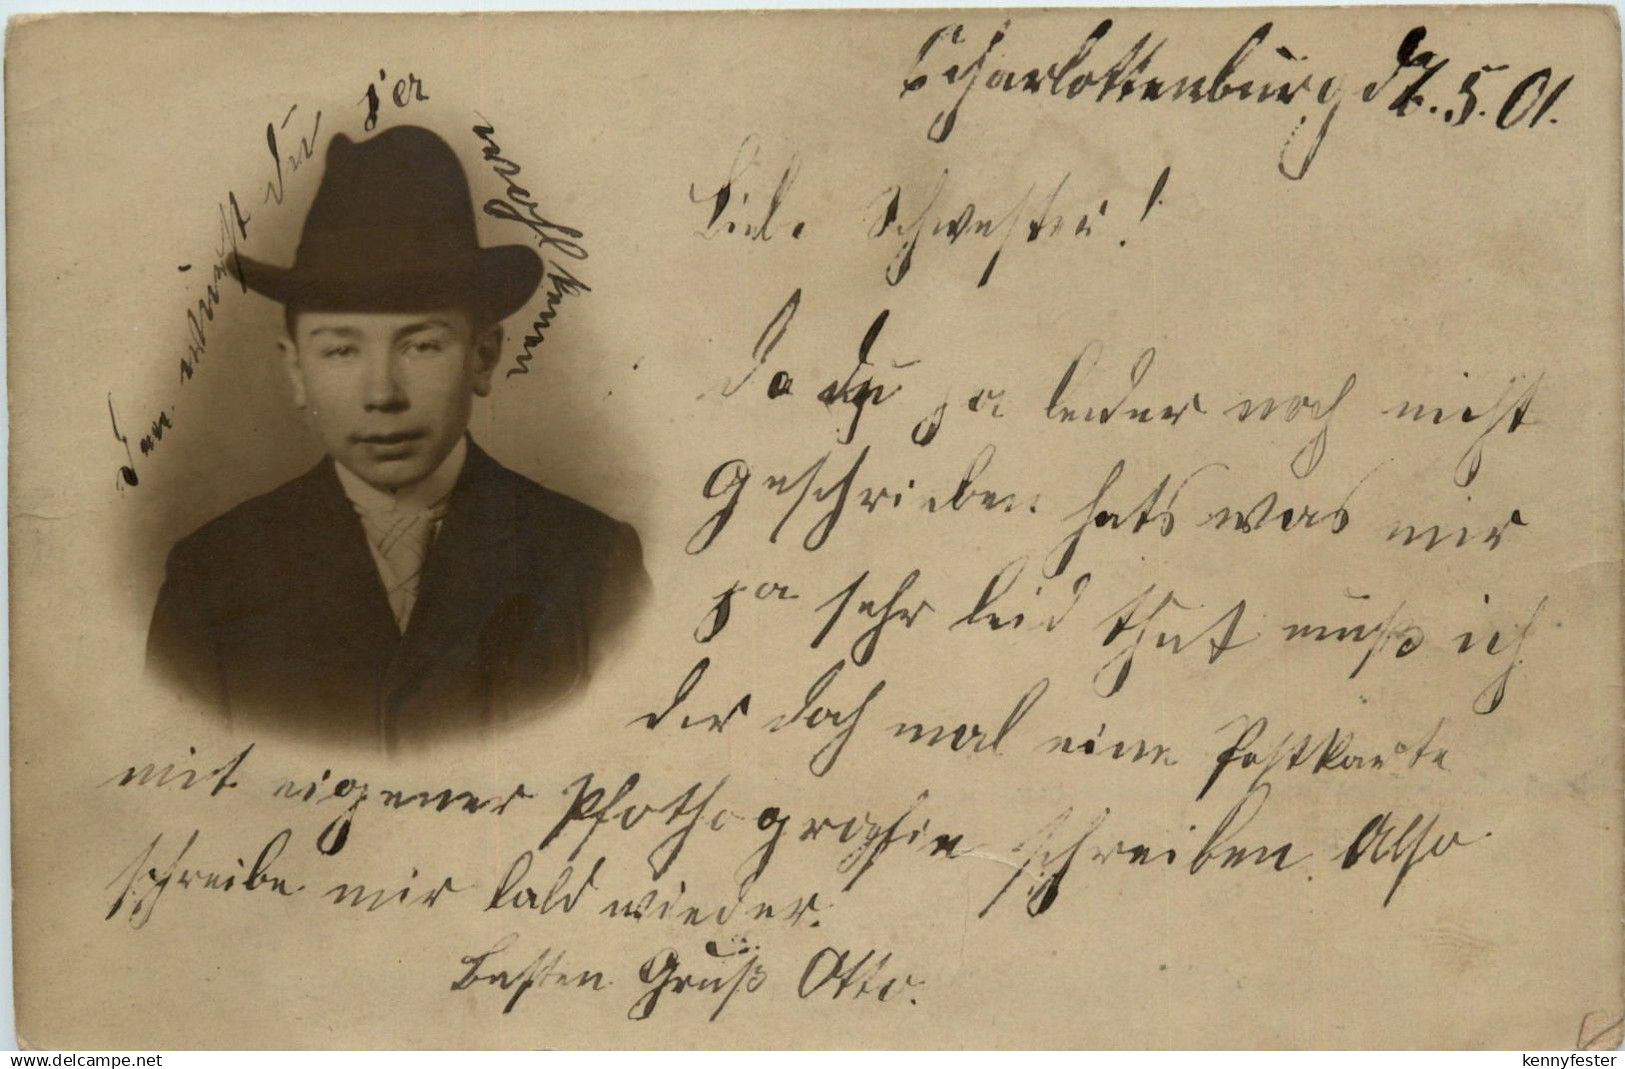 Charlottenburg d. 7.5.01.
Liebe Schwester!
Da Du ja leider noch nicht
geschrieben hats was mir
ja sehr leid thut muß ich
der doch mal eine Postkarte
mit eigener Pfothografie schreiben. Also
schreibe mir bald wieder.
Besten Gruß Otto.
Den wirst Du ja wohl kennen
www.delcampe.net
kennyfester